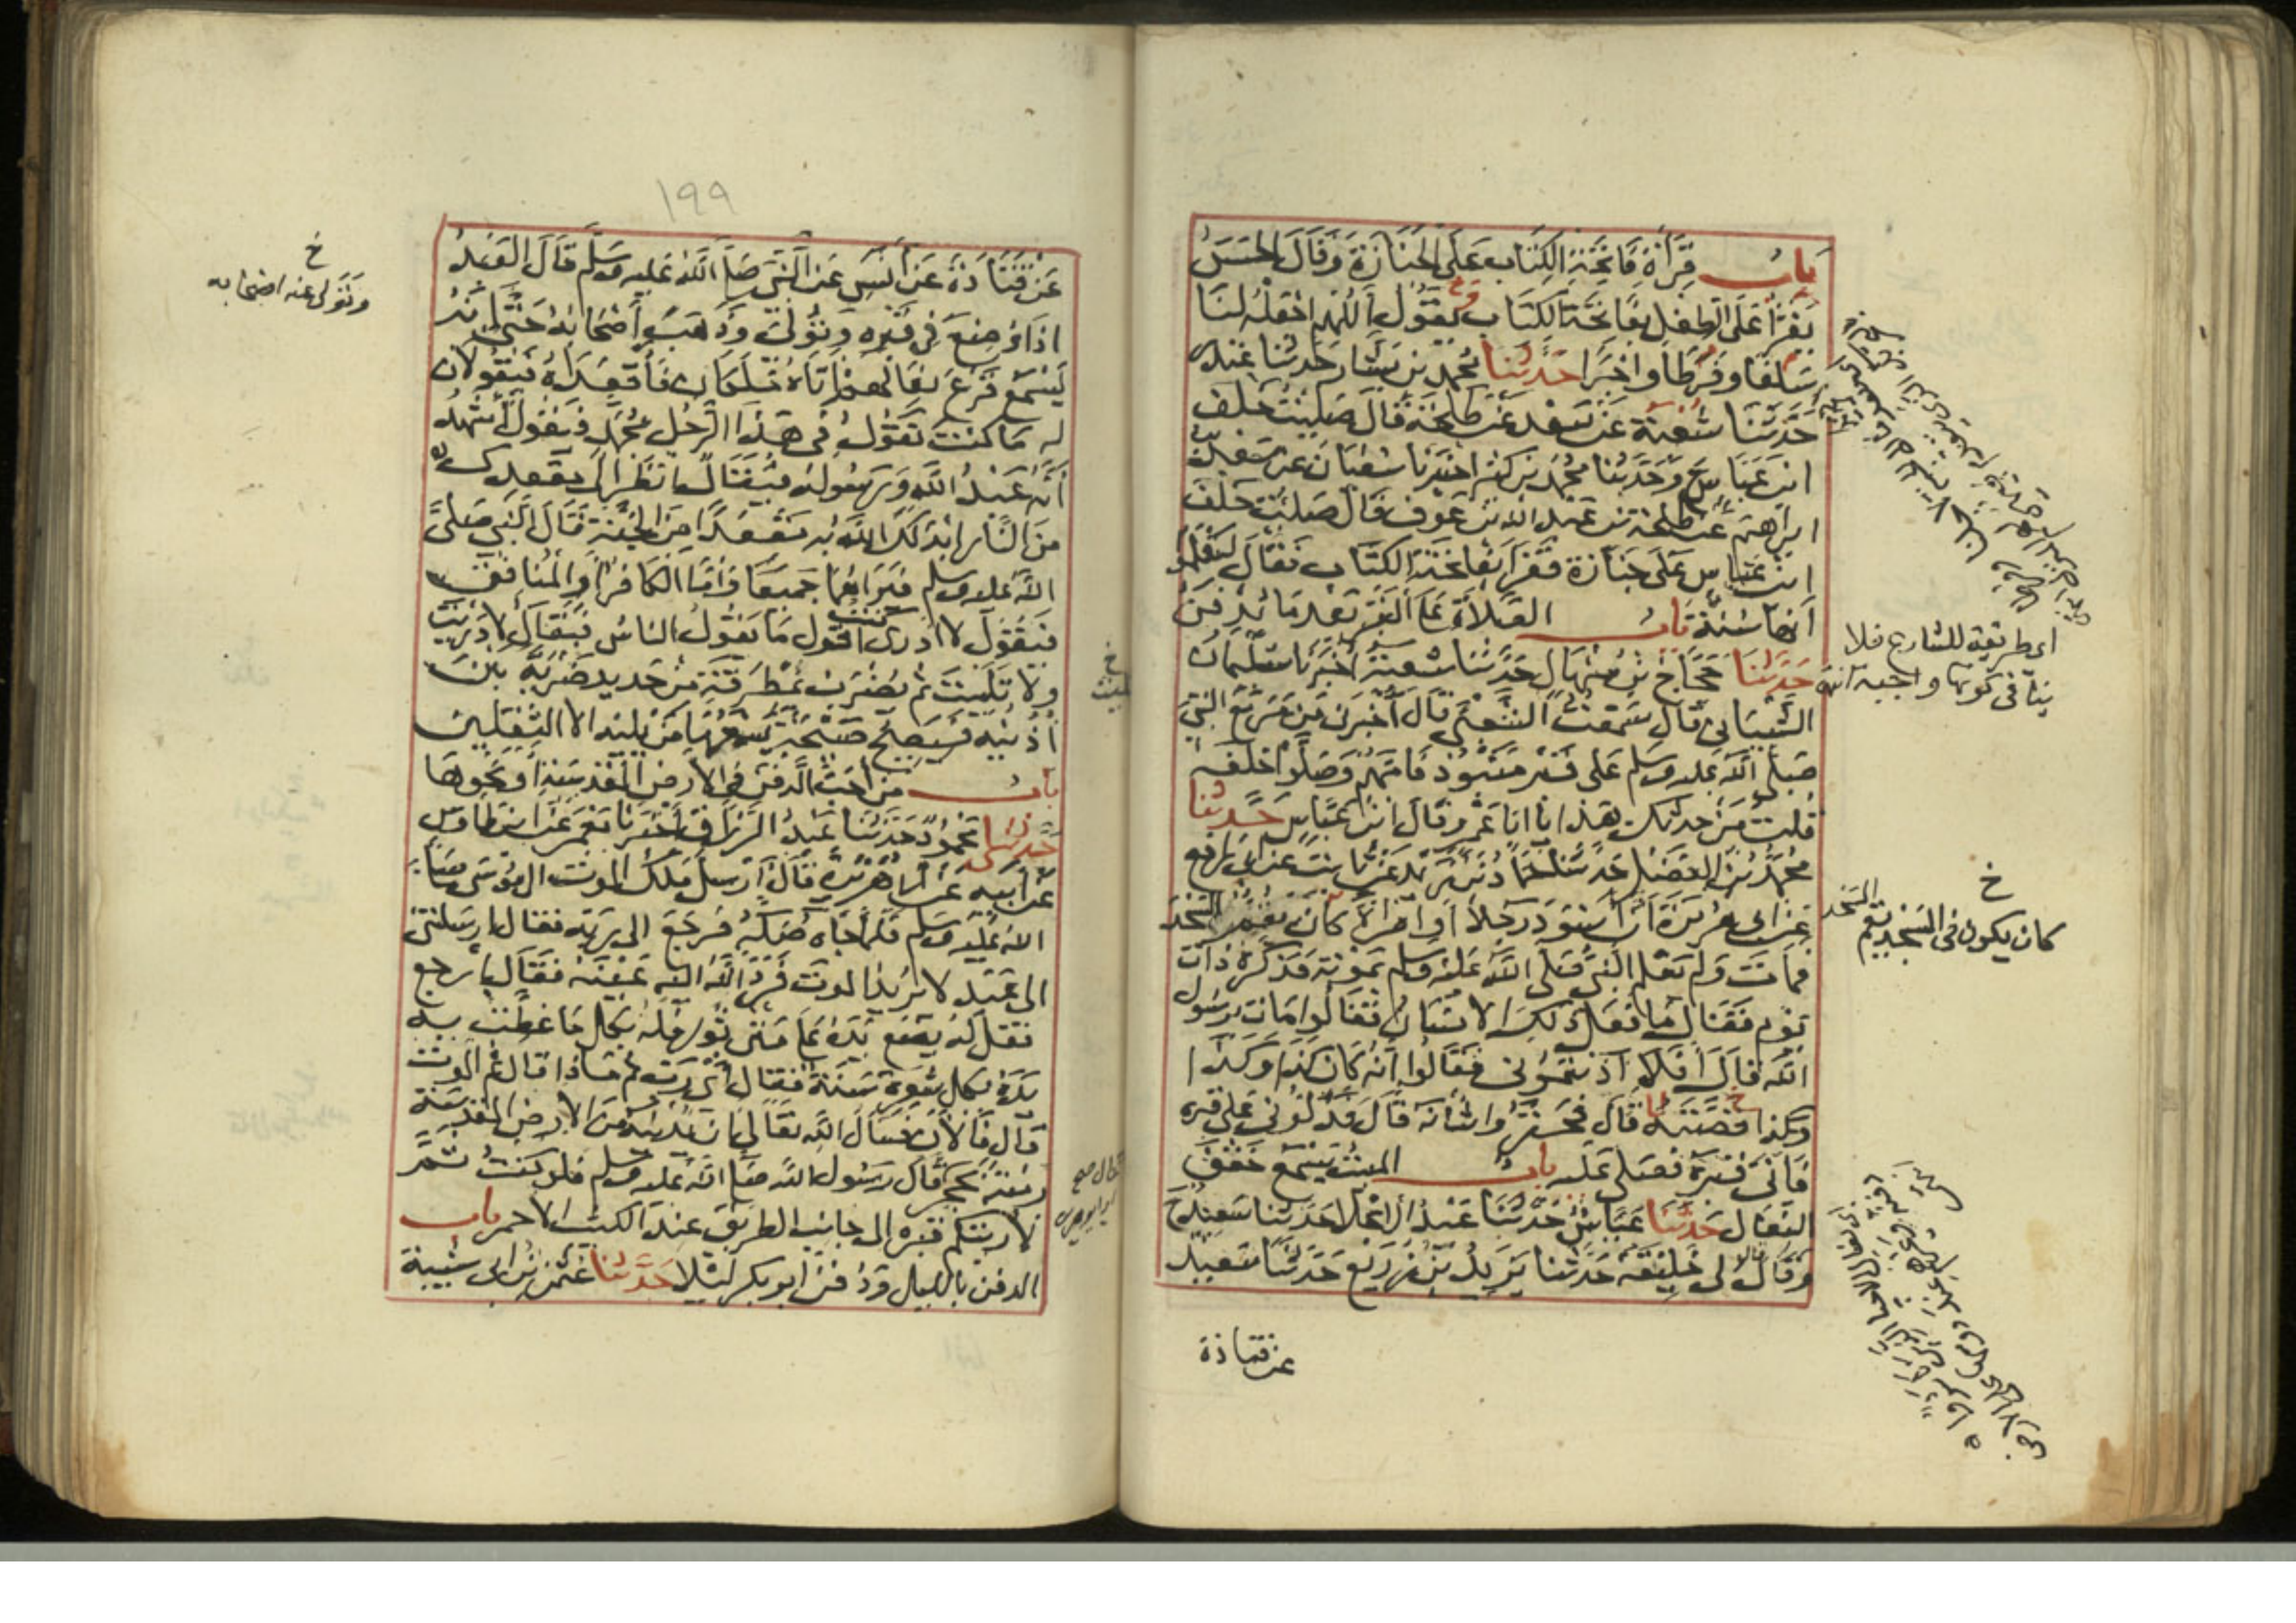 باب قراءة فاتحة الكتاب على الجنازة وقال الحسن
يقرأ على الطفل بفاتحة الكتاب ويقول اللهم اجعله لنا
سلفا وفرطا واجرا حدثنا محمد بن بشار حدثنا غندر
حدثنا شعبة عن سعد عن طلحة قال صليت خلف
ابن عباس ح وحدثنا محمد بن كثير اخبرنا سفيان عن سعد بن
ابراهيم عن طلحة بن عبد الله بن عوف قال صليت خلف
ابن عباس على جنازة فقرأ بفاتحة الكتاب فقال ليعلموا
أنها سنة باب الصلاة على القبر بعد ما يدفن
حدثنا حجاج بن منهال حدثنا شعبة أخبرنا سليمان
الشيباني قال سمعت الشعبي قال أخبرني من مر مع النبي
صلى الله عليه وسلم على قبر منبوذ فامهم وصلوا خلفه
قلت من حدثك هذا يا ابا عمرو قال ابن عباس حدثنا
محمد بن الفضل حدثنا حماد بن زيد عن ثابت عن ابي رافع
عن ابي هريرة أن اسود رجلا أو امرأة كان يقم المسجد
فمات ولم يعلم النبي صلى الله عليه وسلم بموته فذكره ذات
يوم فقال ما فعل ذلك الانسان فقالوا مات يرسول
الله قال افلا آذنتموني فقالوا انه كان كذا وكذا
وكذا قصته قال فحقروا شأنه قال فدلوني على قبره
فأتى قبره فصلى عليه باب الميت يسمع خفق
النعال حدثنا عياش حدثنا عبد الاعلا حدثنا سعيد ح
وقال لي خليفة حدثنا يزيد بن زريع حدثنا سعيد
عن قتادة
اى طريقة للشارع فلا
ينافى كونها واجبة انتهى
خ
كان يكون فى المسجد يقم المسجد
١٩٩
عن قتادة عن أنس عن النبي صلى الله عليه وسلم قال العبد
اذا وضع في قبره وتولى وذهب أصحابه حتى انه
ليسمع قرع نعالهم اتاه ملكان فأقعداه فيقولان
له ما كنت تقول في هذا الرجل محمد فيقول أشهد
أنه عبد الله ورسوله فيقال انظر الى مقعدك
من النار ابدلك الله به مقعدا من الجنة قال النبي صلى
الله عليه وسلم فيراهما جميعا وأما الكافر أو المنافق
فيقول لا ادرى كنت اقول ما يقول الناس فيقال لا دريت
ولا تليت ثم يضرب بمطرقة من حديد ضربة بين
أذنيه فيصيح صيحة يسمعها من يليه الا الثقلين
باب من أحب الدفن في الارض المقدسة أو نحوها
حدثنا محمود حدثنا عبد الرزاق أخبرنا معمر عن ابن طاوس
عن أبيه عن أبي هريرة قال أرسل ملك الموت الى موسى صلى
الله عليه وسلم فلما جاه صكه فرجع الى ربه فقال ارسلتنى
الى عبد لا يريد الموت فرد الله اليه عينه فقال ارجع
فقل له يضع يده على متن ثور فله بكل ما غطت به
يده بكل شعرة سنة فقال أى رب ثم ماذا قال ثم الموت
قال فالآن فسأل الله تعالى ان يدنيه من الارض المقدسة
رمية بحجر قال رسول الله صلى الله عليه وسلم فلو كنت ثم
لاريتكم قبره الى جانب الطريق عند الكثيب الاحمر باب
الدفن بالليل ودفن ابو بكر ليلا حدثنا عثمن بن ابى شيبة
خ
وتولى عنه اصحابه